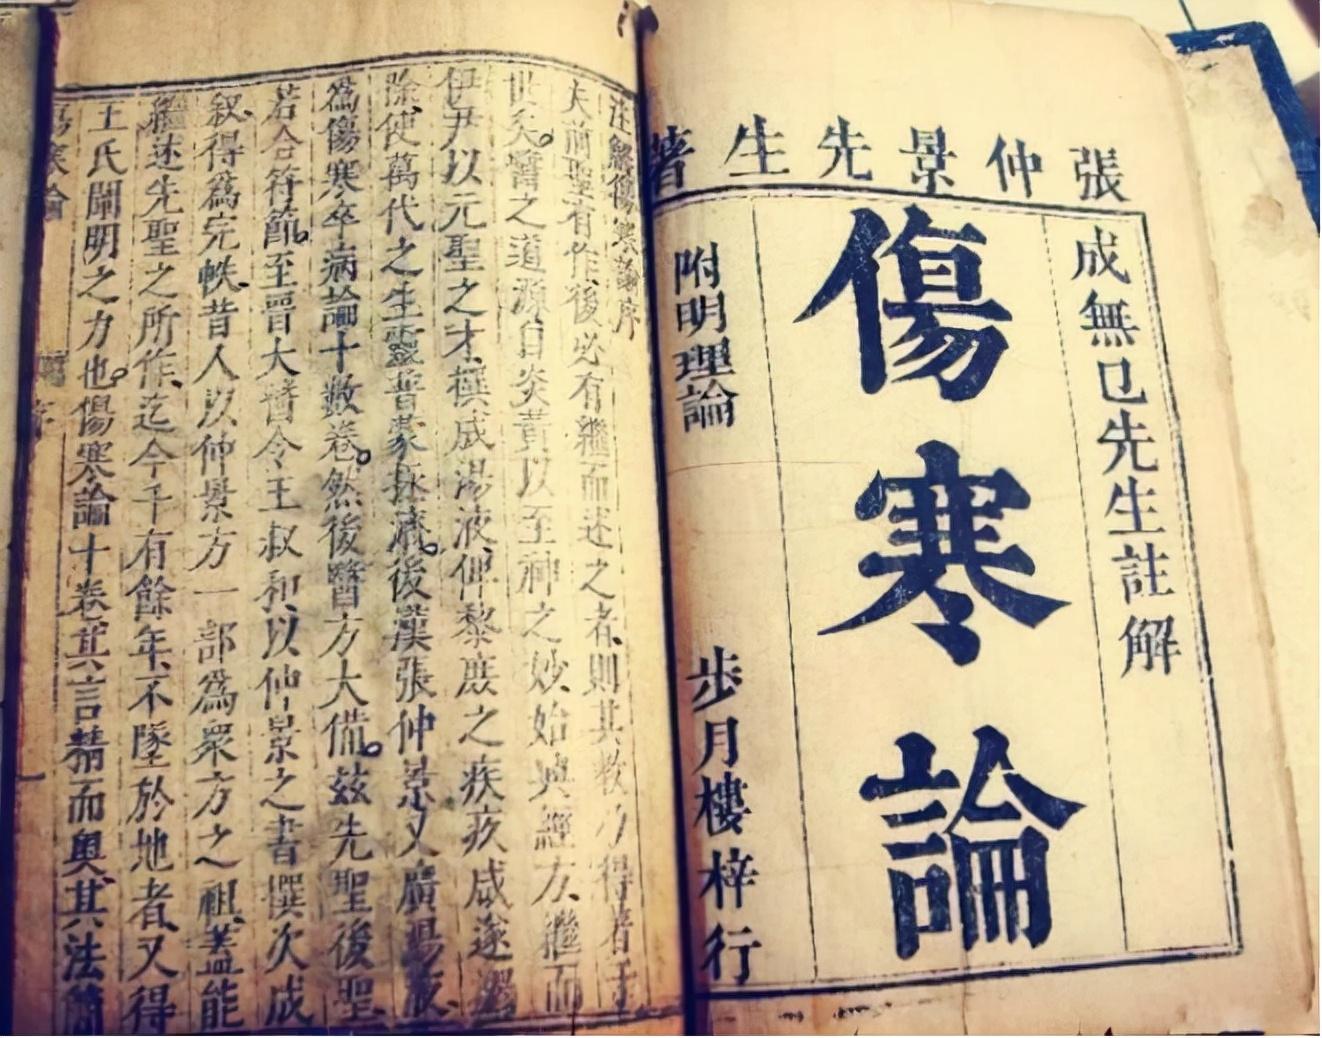 張仲景先生著
成無已先生註解
傷寒論
附明理論
步月樓梓行
注解傷寒論序
夫前聖有作、後必有繼而述之者、則其教乃得著于
世矣。醫之道源自炎黃以至神之妙、始興經方、繼而
伊尹以元聖之才、撰成湯液、俾黎庶之疾疚咸遂蠲
除、使萬代之生靈普蒙拯濟。後漢張仲景又廣湯液
爲傷寒卒病論十數卷。然後醫方大備。茲先聖後聖
若合符節。至晉大醫令王叔和、以仲景之書撰次成
叙、得爲完帙、昔人以仲景方一部爲衆方之祖、蓋能
繼述先聖之所作、迄今千有餘年、不墜於地者、又得
王氏闡明之力也。傷寒論十卷、其言精而奥、其法簡
傷寒論 序 一